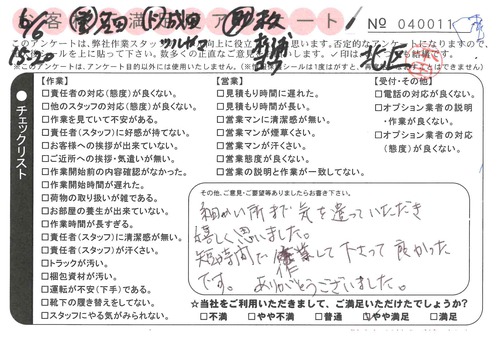 お客様満足度アンケート № 040011
6/6
15:20
北区
このアンケートは、弊社作業スタッフ
※このアンケートは、アンケート目的以外には使用いたしません。
チェックリスト
【作業】
□責任者の対応(態度)が良くない。
□他のスタッフの対応(態度)が良くない。
□作業を見ていて不安がある。
□責任者(スタッフ)に好感が持てない。
□お客様への挨拶が出来ていない。
□ご近所への挨拶・気遣いが無い。
□作業開始前の内容確認がなかった。
□作業開始時間が遅れた。
□荷物の取り扱いが雑である。
□お部屋の養生が出来ていない。
□作業時間が長すぎる。
□責任者(スタッフ)に清潔感が無い。
□責任者(スタッフ)が汗くさい。
□トラックが汚い。
□梱包資材が汚い。
□運転が不安(下手)である。
□靴下の履き替えをしてない。
□スタッフにやる気がみられない。
【営業】
□見積もり時間に遅れた。
□見積もり時間が長い。
□営業マンに清潔感が無い。
□営業マンが煙草くさい。
□営業マンが汗くさい。
□営業態度が良くない。
□営業の説明と作業が一致してない。
【受付・その他】
□電話の対応が良くない。
□オプション業者の説明
・作業が良くない。
□オプション業者の対応
(態度)が良くない。
その他、ご意見・ご要望等ありましたらお書き下さい。
細かい所まで気を遣っていただき
嬉しく思いました。
短時間で作業して下さって良かった
です。ありがとうございました。
☆当社をご利用いただきまして、ご満足いただけたでしょうか?
□不満 □やや不満 □普通 ☑やや満足 □満足